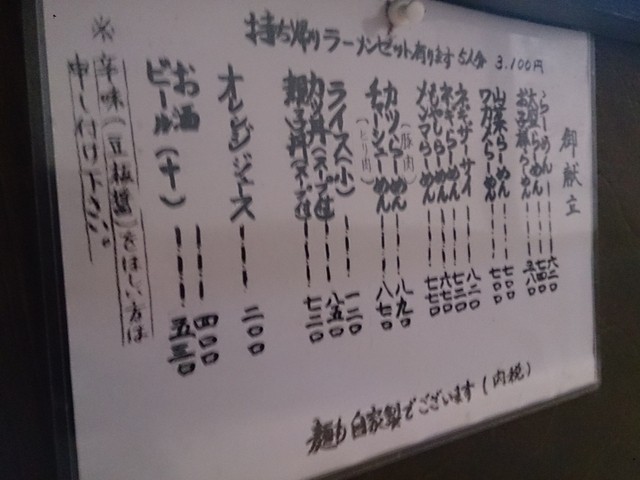 持ち帰りラーメンセット有ります 5人分 3.100円
御献立
らーめん 六二〇
大盛らーめん 七四〇
お子様らーめん 三八〇
山菜らーめん 七〇〇
ワカメらーめん 七〇〇
ネギザーサイ 八二〇
ネギらーめん 七二〇
もやしらーめん 六七〇
メンマらーめん 七七〇
カツらーめん(豚肉) 八九〇
チャーシューめん(とり肉) 八七〇
ライス(小) 一二〇
カツ丼(スープ付) 八五〇
親子丼(スープ付) 七二〇
オレンジジュース 二〇〇
お酒 四〇〇
ビール(中) 五三〇
※辛味(豆板醤)をほしい方は
申し付け下さい。
麺も自家製でございます(内税)